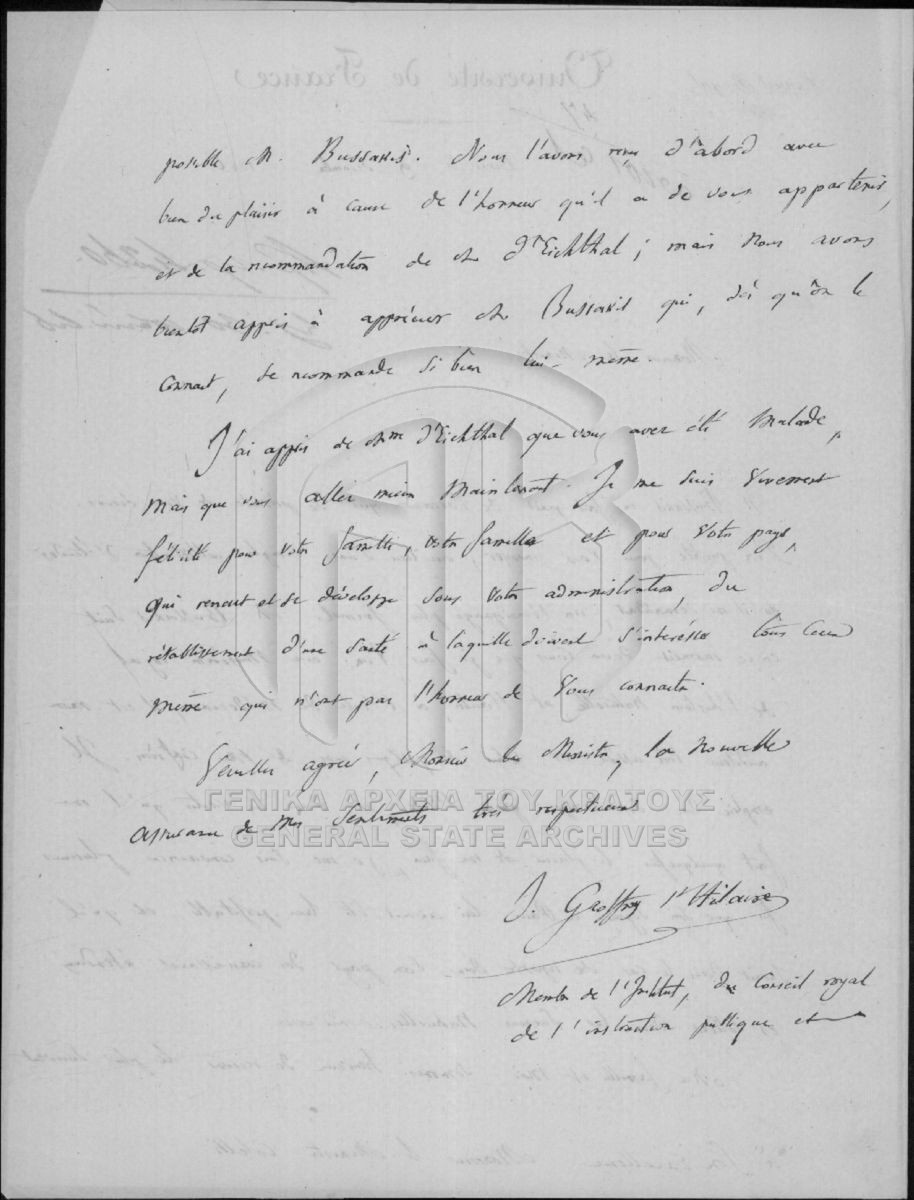 possible M. Bussakis. Nous l'avons reçu d'abord avec
bien du plaisir à cause de l'honneur qu'il a de vous appartenir,
et de la recommandation de M. d'Eichthal; mais nous avons
bientôt appris à apprécier M. Bussakis qui, dès qu'on le
connait, se recommande si bien lui-même.
J'ai appris de Mme d'Eichthal que vous avez été malade,
mais que vous allez mieux maintenant. Je me suis vivement
félicité pour votre famille, votre famille et pour votre pays,
qui renait et se développe sous votre administration, du
rétablissement d'une santé à laquelle doivent s'intéresser tous ceux
même qui n'ont pas l'honneur de vous connaitre.
Veuillez agréer, Monsieur le Ministre, la nouvelle
assurance de mes sentiments très respectueux
I. Geoffroy St Hilaire
Membre de l'Institut, du Conseil royal
de l'instruction publique etc
ΓΕΝΙΚΑ ΑΡΧΕΙΑ ΤΟΥ ΚΡΑΤΟΥΣ
GENERAL STATE ARCHIVES